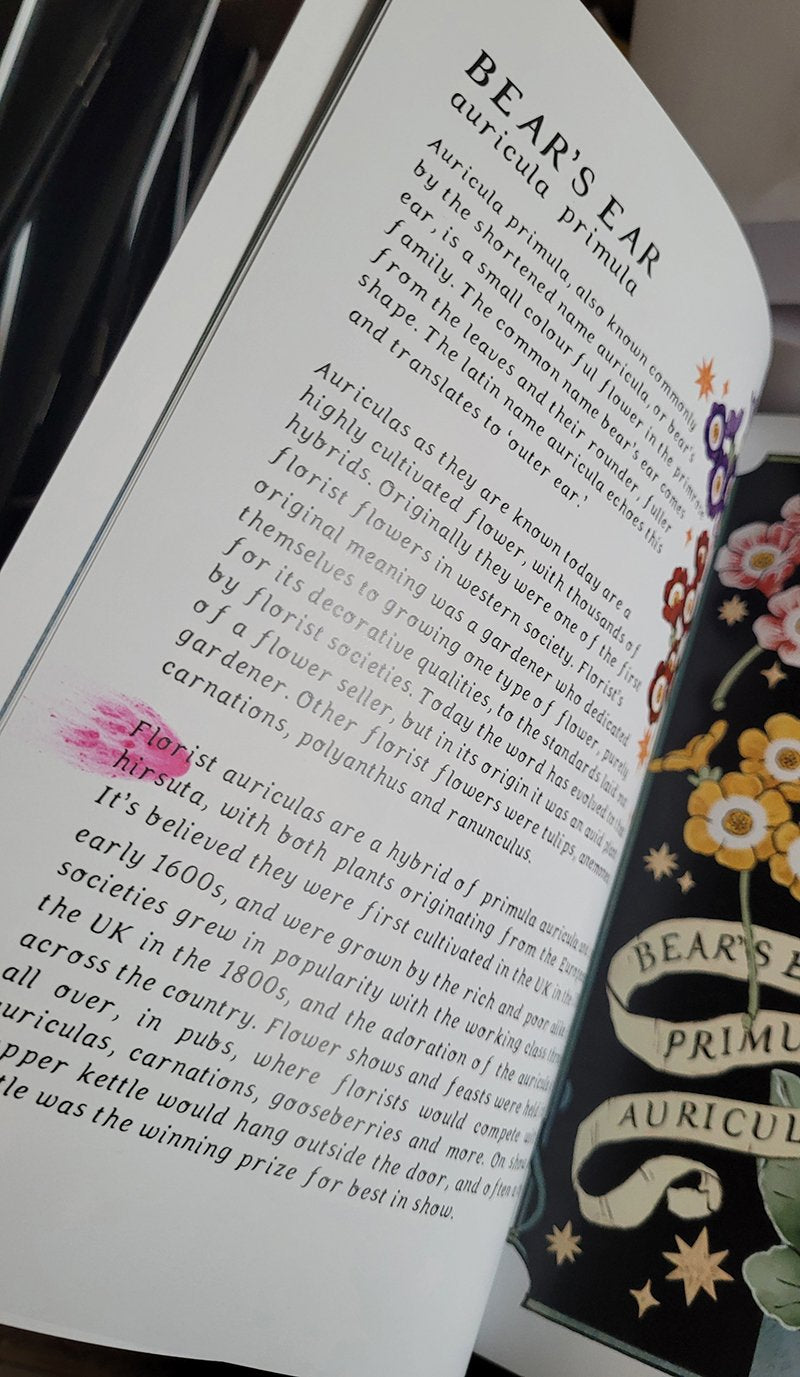 BEAR'S EAR
auricula primula
Auricula primula, also known commonly
by the shortened name auricula, or bear's
ear, is a small colour ful flower in the primrose
family. The common name bear's ear comes
from the leaves and their rounder, fuller
shape. The latin name auricula echoes this
and translates to 'outer ear.'
Auriculas as they are known today are a
highly cultivated flower, with thousands of
hybrids. Originally they were one of the first
florist flowers in western society. Florist's
original meaning was a gardener who dedicated
themselves to growing one type of flower, purely
for its decorative qualities, to the standards laid out
by florist societies. Today the word has evolved in
of a flower seller, but in its origin it was an avid plant
gardener. Other florist flowers were tulips, anemones,
carnations, polyanthus and ranunculus.
Florist auriculas are a hybrid of primula auricula and
hirsuta, with both plants originating from the
It's believed they were first cultivated in the UK in the
early 1600s, and were grown by the rich and poor alike
societies grew in popularity with the working class
the UK in the 1800s, and the adoration of the
across the country. Flower shows and feasts were held
all over, in pubs, where florists would compete
auriculas, carnations, gooseberries and more. On
kettle would hang outside the door, and often
was the winning prize for best in show.
BEAR'S